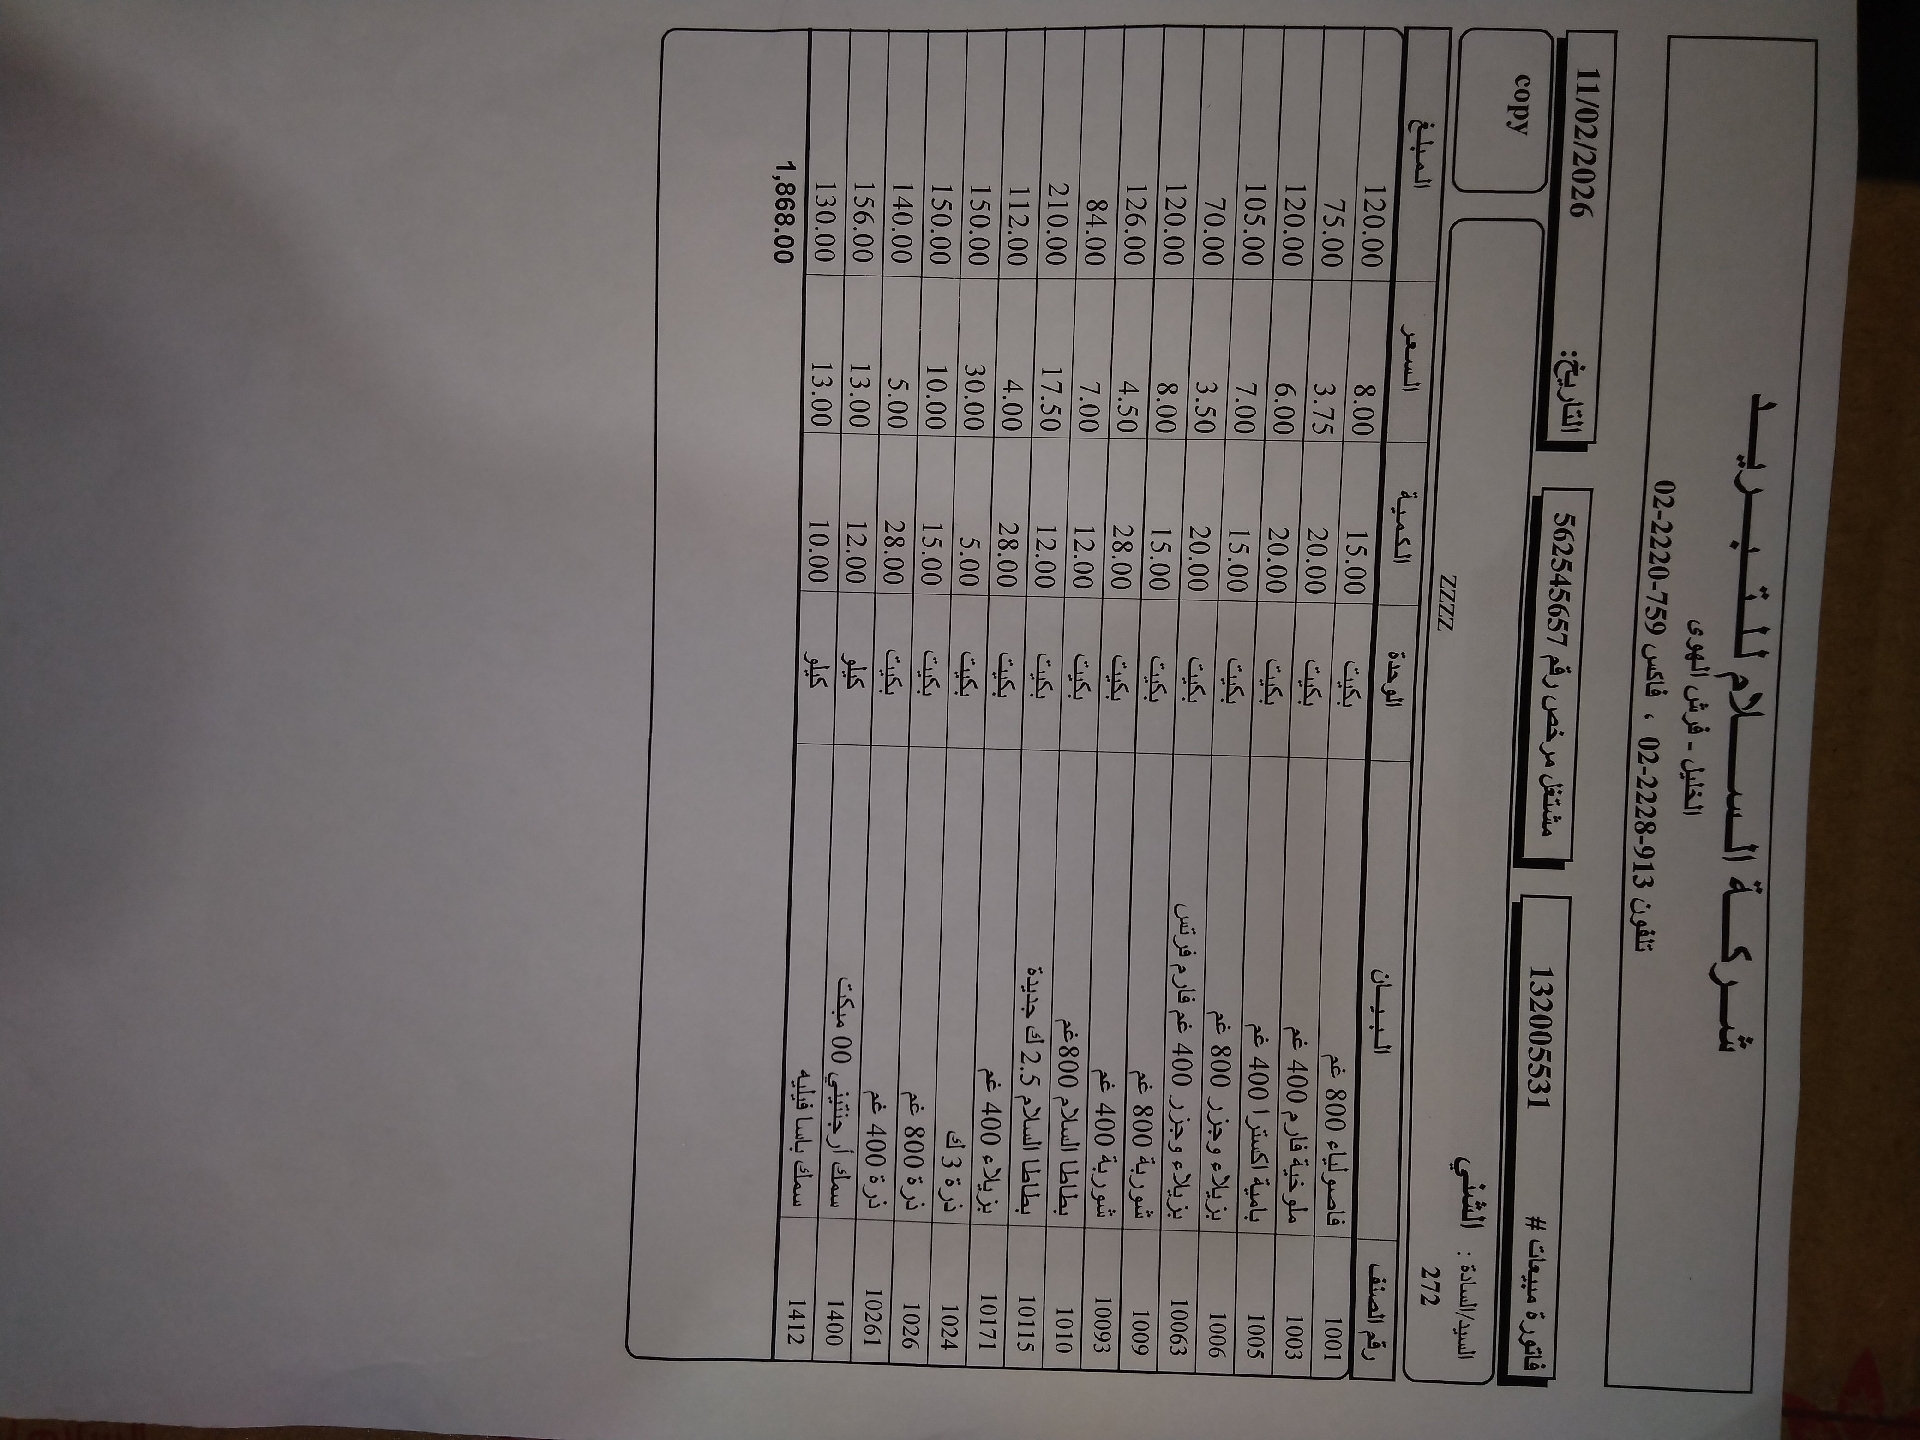 شركة السلام للتبريد
الخليل - فرش الهوى
تلفون 02-2228-913 ، فاكس 02-2220-759
فاتورة مبيعات # 132005531
مشتغل مرخص رقم 562545657
التاريخ: 11/02/2026
السيد/السادة : الشني
272 ZZZZ
copy
رقم الصنف البيان الوحدة الكمية السعر المبلغ
1001 فاصولياء 800 غم بكيت 15.00 8.00 120.00
1003 ملوخية فارم 400 غم بكيت 20.00 3.75 75.00
1005 بامية اكسترا 400 غم بكيت 20.00 6.00 120.00
1006 بزيلاء وجزر 800 غم بكيت 15.00 7.00 105.00
10063 بزيلاء وجزر 400 غم فارم فرتس بكيت 20.00 3.50 70.00
1009 شوربة 800 غم بكيت 15.00 8.00 120.00
10093 شوربة 400 غم بكيت 28.00 4.50 126.00
1010 بطاطا السلام 800غم بكيت 12.00 7.00 84.00
10115 بطاطا السلام 2.5 ك جديدة بكيت 12.00 17.50 210.00
10171 بزيلاء 400 غم بكيت 28.00 4.00 112.00
1024 ذرة 3 ك بكيت 5.00 30.00 150.00
1026 ذرة 800 غم بكيت 15.00 10.00 150.00
10261 ذرة 400 غم بكيت 28.00 5.00 140.00
1400 سمك أرجنتيني 00 مبكت كيلو 12.00 13.00 156.00
1412 سمك باسا فيليه كيلو 10.00 13.00 130.00
1,868.00